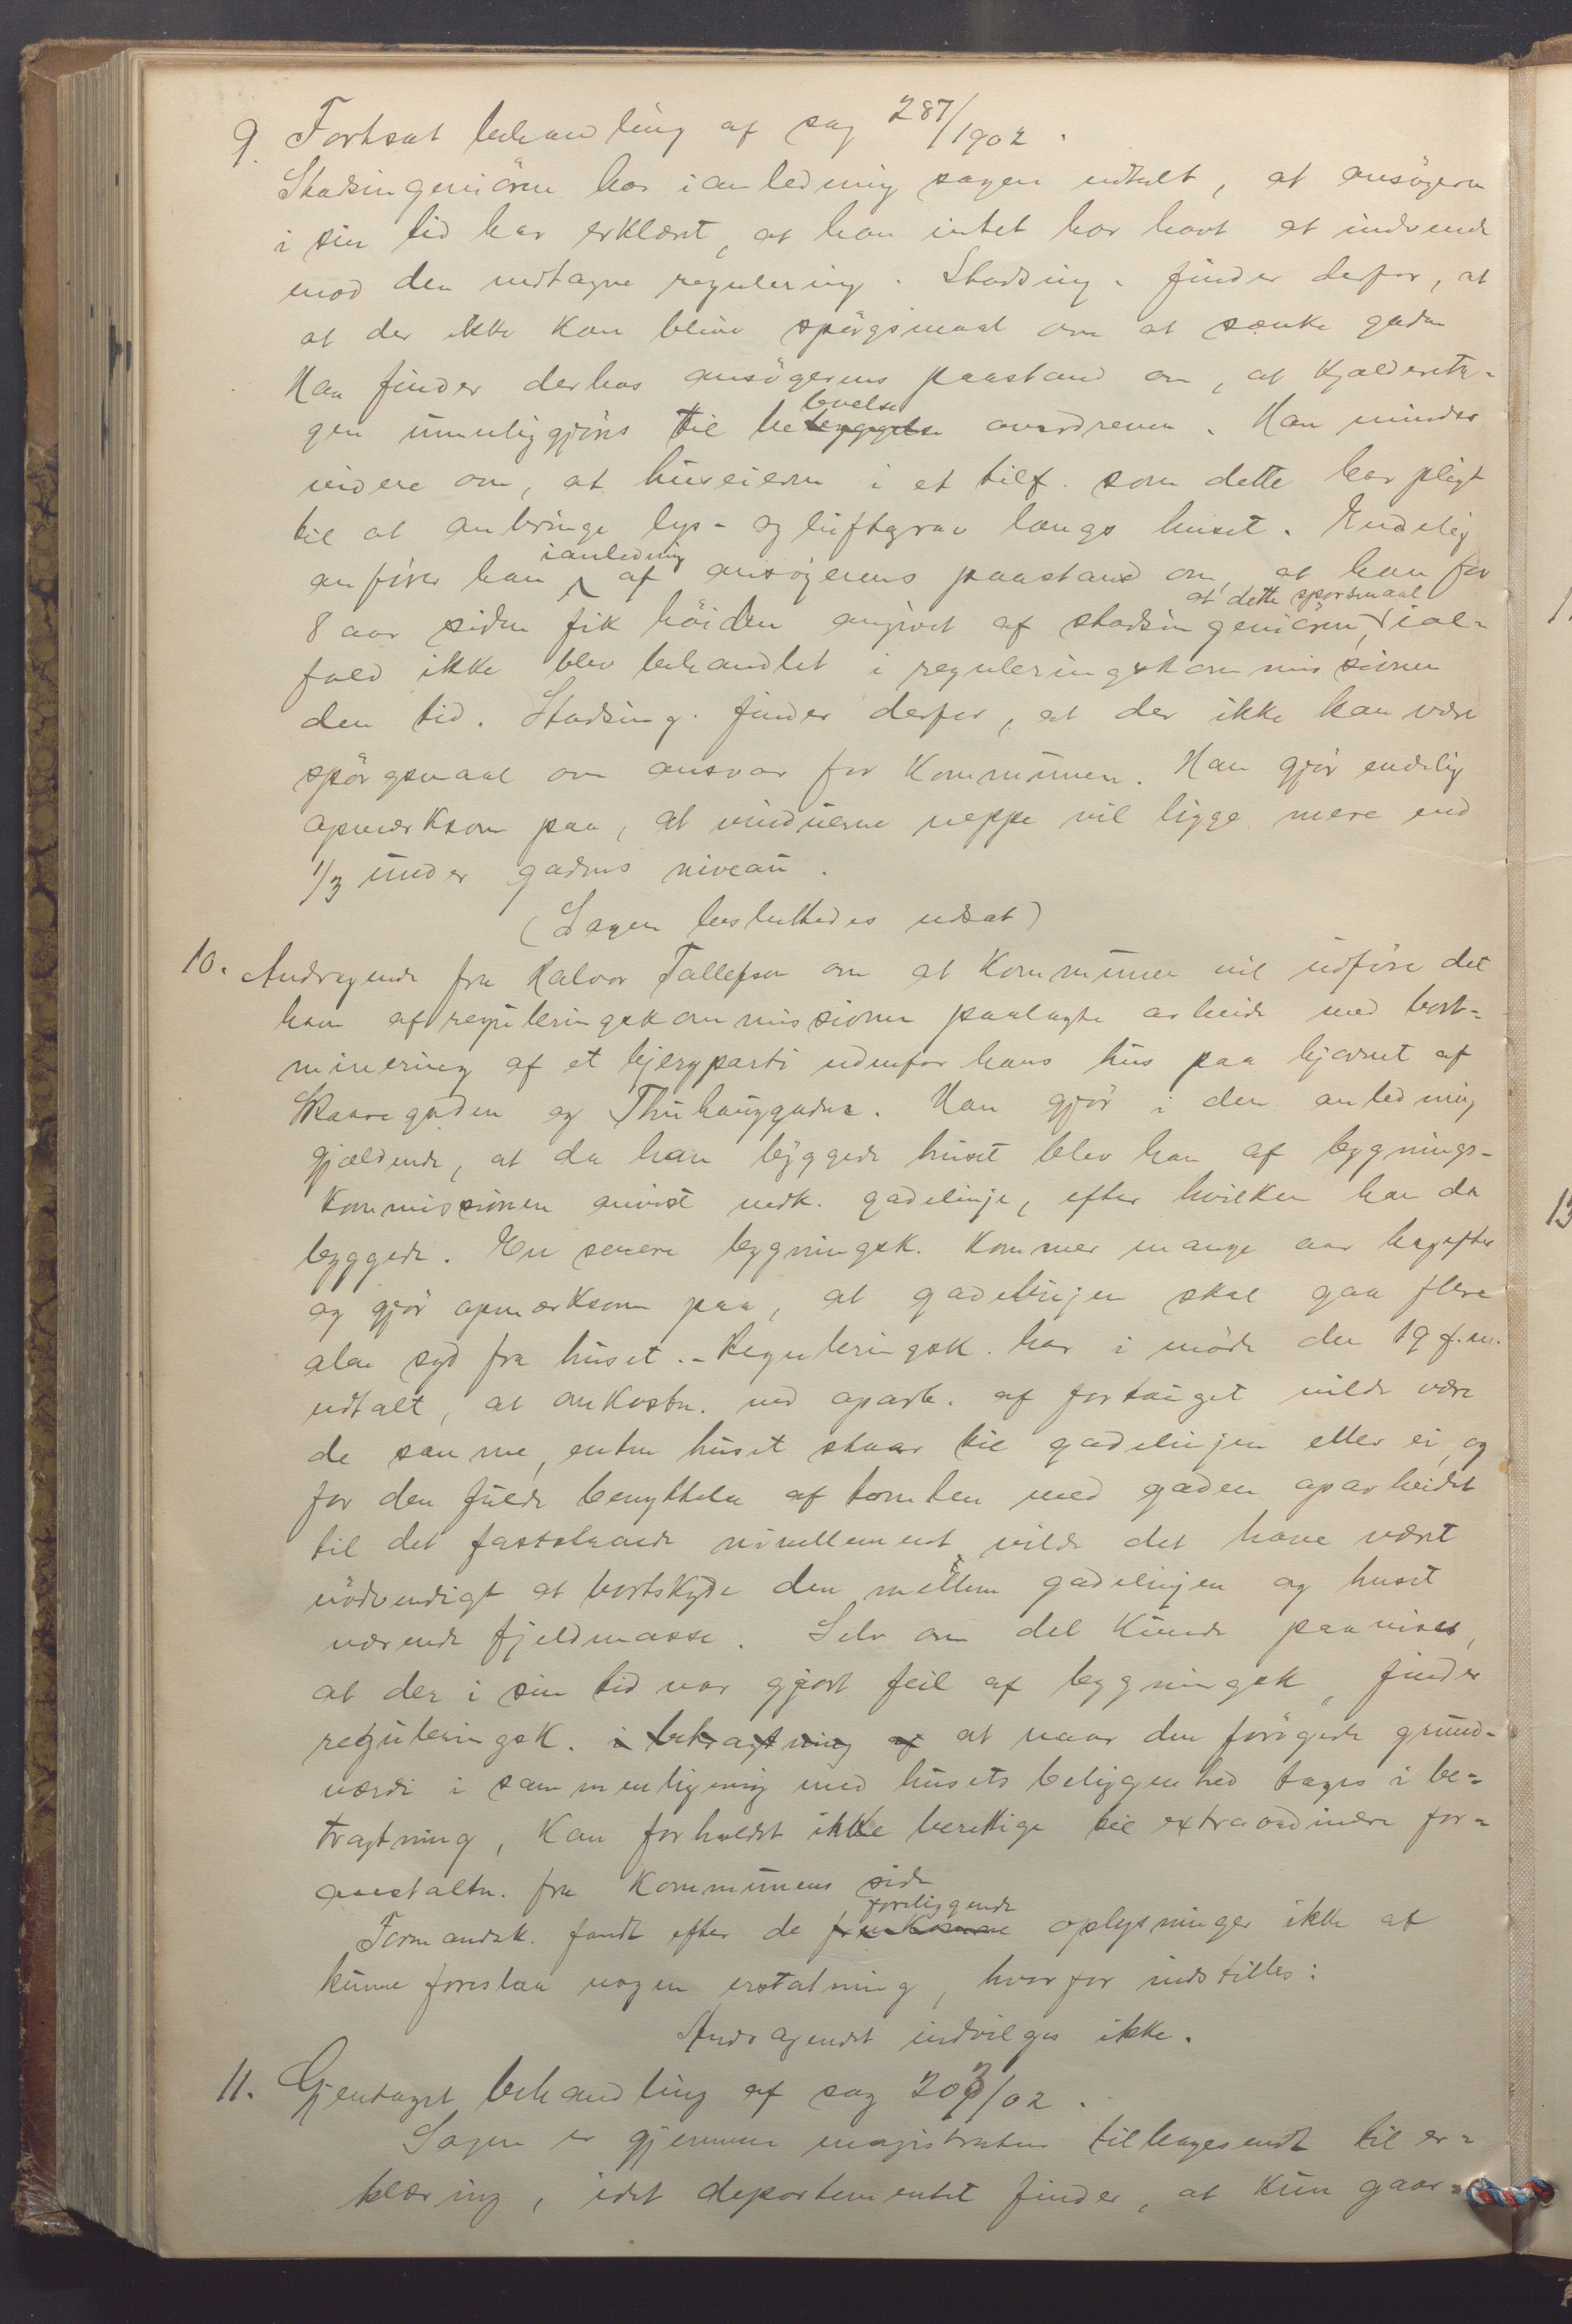 9. Fortsat behandling af sag 287/1902.
Stadsingeniören har ianledning sagen udtalt, at ansögeren
i sin tid har erklært, at han intet har havt at indvende
mod den vedtagne regulering. Stadsing. finder derfor, at
at der ikke kan blive spörgsmaal om at sænke gaden
Han finder derhos ansögerens paastand om, at kjældereta-
gen umuliggjöres til bebyggelse boelse overdreven. Han minder
videre om, at huseieren i et tilf. som dette har pligt
til at anbringe lys- og luftgrav langs huset. Endelig
anförer han ianledning af ansögerens paastand om, at han for
8 aar siden fik höiden angivet af stadsingeniören, at dette sporsmaal ial-
fald ikke blev behandlet i reguleringskommissionen
den tid. Stadsing. finder derfor, at der ikke kan være
spörgsmaal om ansvar for Kommunen. Han gjör endelig
opmærksom paa, at vinduerne neppe vil ligge mere end
1/3 under gadens niveau.
(Sagen besluttedes udsat)
10. Andragende fra Halvor Tallefsen om at Kommunen vil udföre det
ham af reguleringskommissionen paalagte arbeide med bort-
minering af et bjergparti udenfor hans hus paa hjørnet af
Skaaregaden og Thuhauggaden. Han gjör i den anledning
gjældende, at da han byggede huset blev han af bygnings-
kommissionen anvist vedk. gadelinje, efter hvilken han da
byggede. En senere bygningsk. kommer mange aar bagefter
og gjör opmærksom paa, at gadelinjen skal gaa flere
alen syd fra huset. - Reguleringsk. har i möde den 19 f.m.
udtalt, at omkostn. ved oparb. af fortauget vilde være
de samme, enten huset staar til gadelinjen eller ei, og
for den fulde benyttelse af tomten med gaden oparbeidet
til det fastslaaede nivellement vilde det have været
nödvendigt at bortskyde den mellem gadelinjen og huset
værende fjeldmasse. Selv om det kunde paavises,
at der i sin tid var gjort feil af bygningsk, finder
reguleringsk. i betragtning af at naar den forögede grund-
værdi i sammenligning med husets beliggenhed tages i be-
tragtning, kan forholdet ikke berettige til extraordinære for-
anstaltn. fra Kommunens side
Formandsk. fandt efter de fremkomne foreliggende oplysninger ikke at
kunne foreslaa nogen erstatning, hvorfor indstilles:
Andragendet indvilges ikke.
11. Gjentaget behandling af sag 203/02.
Sagen er gjennem magistraten tilbagesendt til er-
klæring, idet departementet finder, at kun gaar-